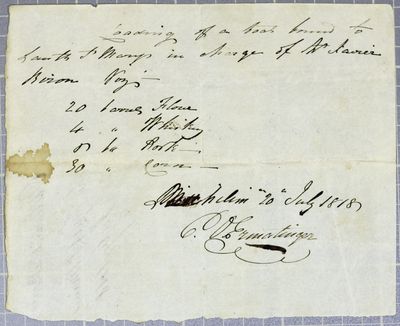 Loading of a boat bound to
Sault St Marys in charge of Mr Xavier
Biron Voyr
20 barrels Flour
4 " Whisky
8 bls Pork
30 " Corn
"20" July 1818
C. O. Ermatinger